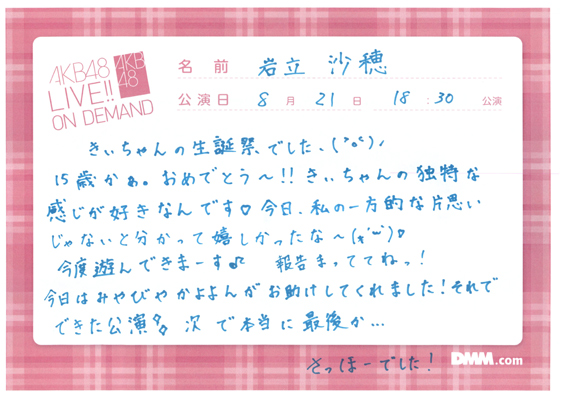 AKB48
LIVE!!
ON DEMAND
AKB
48
名前 岩立 沙穂
公演日 8月21日 18:30公演
きぃちゃんの生誕祭、でした、(^o^)ノ
15歳かぁ。おめでとう〜!!きぃちゃんの独特な
感じが好きなんです♡今日、私の一方的な片思い
じゃないと分かって嬉しかったな〜(*'ω')♡
今度遊んできまーす♪ 報告まっててねっ!
今日はみやびやかよよんがお助けしてくれました!それで
できた公演 次で本当に最後か...
さっほーでした!
DMM.com